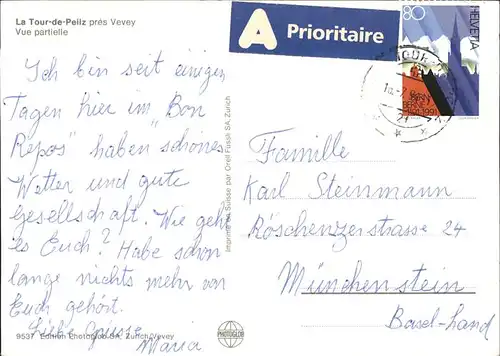 La Tour-de-Peilz près Vevey
Vue partielle
A Prioritaire
80
HELVETIA
BERN
BERNE
1191-1991
Ich bin seit einigen
Tagen hier im „Bon
Repos" haben schönes
Wetter und gute
Gesellschaft. Wie geht
es Euch? Habe schon
lange nichts mehr von
Euch gehört.
Liebe Grüsse
Maria
Familie
Karl Steinmann
Röschenzerstrasse 24
Münchenstein
Basel-Land
Imprimé en Suisse par Orell Füssli SA, Zurich
9537 Edition Photoglob SA, Zurich/Vevey
PHOTOGLOB